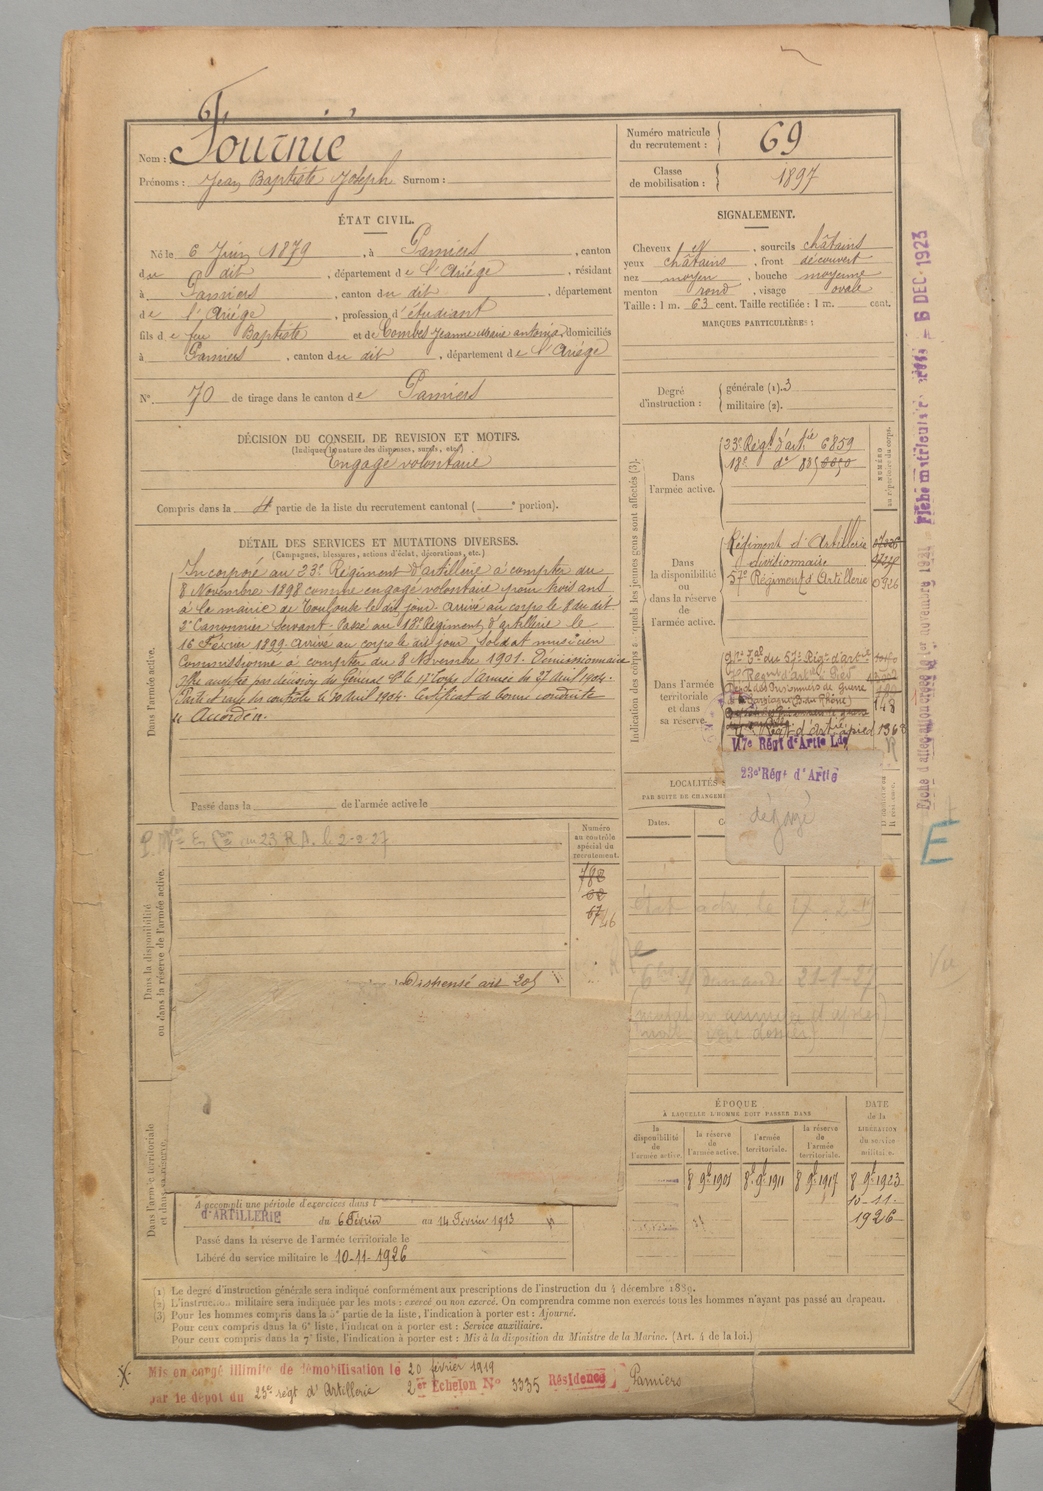 Nom : Fournié
Prénoms : Jean Baptiste Joseph Surnom :
Numéro matricule du recrutement : 69
Classe de mobilisation : 1897
ÉTAT CIVIL.
Né le 6 Juin 1879, à Pamiers, canton
du dit, département de l'Ariége, résidant
à Pamiers, canton du dit, département
de l'Ariége, profession d'étudiant
fils de feu Baptiste et de Combes Jeanne Marie Antonia, domiciliés
à Pamiers, canton du dit, département de l'Ariége
N° 70 de tirage dans le canton de Pamiers
SIGNALEMENT.
Cheveux et, sourcils châtains
yeux châtains, front découvert
nez moyen, bouche moyenne
menton rond, visage ovale
Taille : 1 m. 63 cent. Taille rectifiée : 1 m. cent.
MARQUES PARTICULIÈRES :
Degré d'instruction : générale (1). 3
militaire (2).
DÉCISION DU CONSEIL DE REVISION ET MOTIFS.
(Indiquer la nature des dispenses, sursis, etc.)
Engagé volontaire
Compris dans la 4e partie de la liste du recrutement cantonal ( e portion).
DÉTAIL DES SERVICES ET MUTATIONS DIVERSES.
(Campagnes, blessures, actions d'éclat, décorations, etc.)
Dans l'armée active.
Incorporé au 23e Régiment d'artillerie à compter du
8 Novembre 1898 comme engagé volontaire pour trois ans
à la mairie de Toulouse le dit jour. Arrivé au corps le 8 du dit
2e Canonnier servant. Passé au 18e Régiment d'artillerie le
16 Février 1899. Arrivé au corps le dit jour. Soldat musicien
Commissionné à compter du 8 Novembre 1901. Démissionnaire
par décision du Général 17e Corps d'Armée du 27 avril 1904.
Parti et rayé des contrôles le 30 avril 1904. Certificat de bonne conduite
Accordé.
Passé dans la de l'armée active le
Indication des corps auxquels les jeunes gens sont affectés (3).
NUMÉRO au répertoire du corps.
Dans l'armée active.
23e Régt d'artie 6859
18e do 885
Dans la disponibilité ou dans la réserve de l'armée active.
Régiment d'Artillerie
divisionnaire
57e Régiment d'Artillerie 0926
Dans l'armée territoriale et dans sa réserve.
du 57e Régt d'artie
Régt d'artie à Pied
Prisonniers de Guerre
148
Régt d'artie à pied 1363
117e Régt d'Artie Lde
23e Régt d'Artie
dégagé
LOCALITÉS
PAR SUITE DE CHANGEM
Dates.
Dans la disponibilité ou dans la réserve de l'armée active.
au 23 R.A. le 2-2-27
Numéro au contrôle spécial du recrutement.
788
Dispensé art 20
21-1-27
Dans l'armée territoriale et dans sa réserve.
A accompli une période d'exercices dans l
d'ARTILLERIE du 6 Février au 14 Février 1913
Passé dans la réserve de l'armée territoriale le
Libéré du service militaire le 10-11-1926
ÉPOQUE
À LAQUELLE L'HOMME DOIT PASSER DANS
la disponibilité de l'armée active.
la réserve de l'armée active.
l'armée territoriale.
la réserve de l'armée territoriale.
DATE de la LIBÉRATION du service militaire.
8 9bre 1901
8 9bre 1911
8 9bre 1917
8 9bre 1923
10-11-1926
(1) Le degré d'instruction générale sera indiqué conformément aux prescriptions de l'instruction du 4 décembre 1889.
(2) L'instruction militaire sera indiquée par les mots : exercé ou non exercé. On comprendra comme non exercés tous les hommes n'ayant pas passé au drapeau.
(3) Pour les hommes compris dans la 5e partie de la liste, l'indication à porter est : Ajourné.
Pour ceux compris dans la 6e liste, l'indication à porter est : Service auxiliaire.
Pour ceux compris dans la 7e liste, l'indication à porter est : Mis à la disposition du Ministre de la Marine. (Art. 4 de la loi.)
Mis en congé illimité de démobilisation le 20 février 1919
par le dépôt du 23e régt d'Artillerie 2er Échelon N° 3335 Résidence Pamiers
6 DEC. 1923
E
Vu